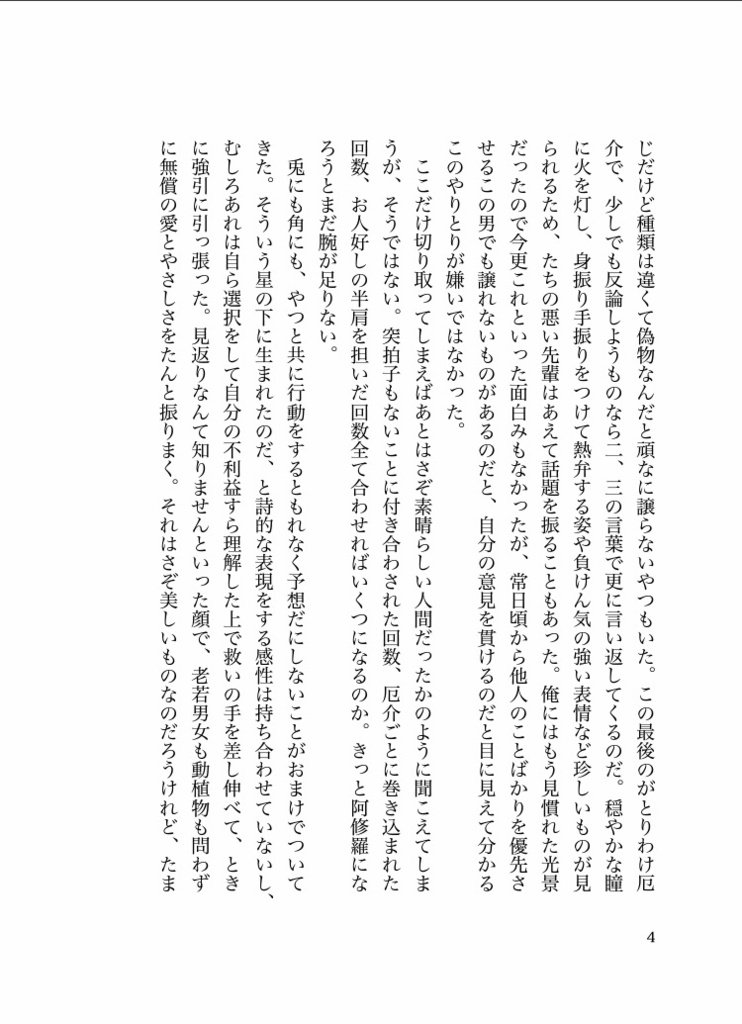 じだけど種類は違くて偽物なんだと頑なに譲らないやつもいた。この最後のがとりわけ厄
介で、少しでも反論しようものなら二、三の言葉で更に言い返してくるのだ。穏やかな瞳
に火を灯し、身振り手振りをつけて熱弁する姿や負けん気の強い表情など珍しいものが見
られるため、たちの悪い先輩はあえて話題を振ることもあった。俺にはもう見慣れた光景
だったので今更これといった面白みもなかったが、常日頃から他人のことばかりを優先さ
せるこの男でも譲れないものがあるのだと、自分の意見を貫けるのだと目に見えて分かる
このやりとりが嫌いではなかった。
ここだけ切り取ってしまえばあとはさぞ素晴らしい人間だったかのように聞こえてしま
うが、そうではない。突拍子もないことに付き合わされた回数、厄介ごとに巻き込まれた
回数、お人好しの半肩を担いだ回数全て合わせればいくつになるのか。きっと阿修羅にな
ろうとまだ腕が足りない。
兎にも角にも、やつと共に行動をするともれなく予想だにしないことがおまけでついて
きた。そういう星の下に生まれたのだ、と詩的な表現をする感性は持ち合わせていないし、
むしろあれは自ら選択をして自分の不利益すら理解した上で救いの手を差し伸べて、とき
に強引に引っ張った。見返りなんて知りませんといった顔で、老若男女も動植物も問わず
に無償の愛とやさしさをたんと振りまく。それはさぞ美しいものなのだろうけれど、たま
4